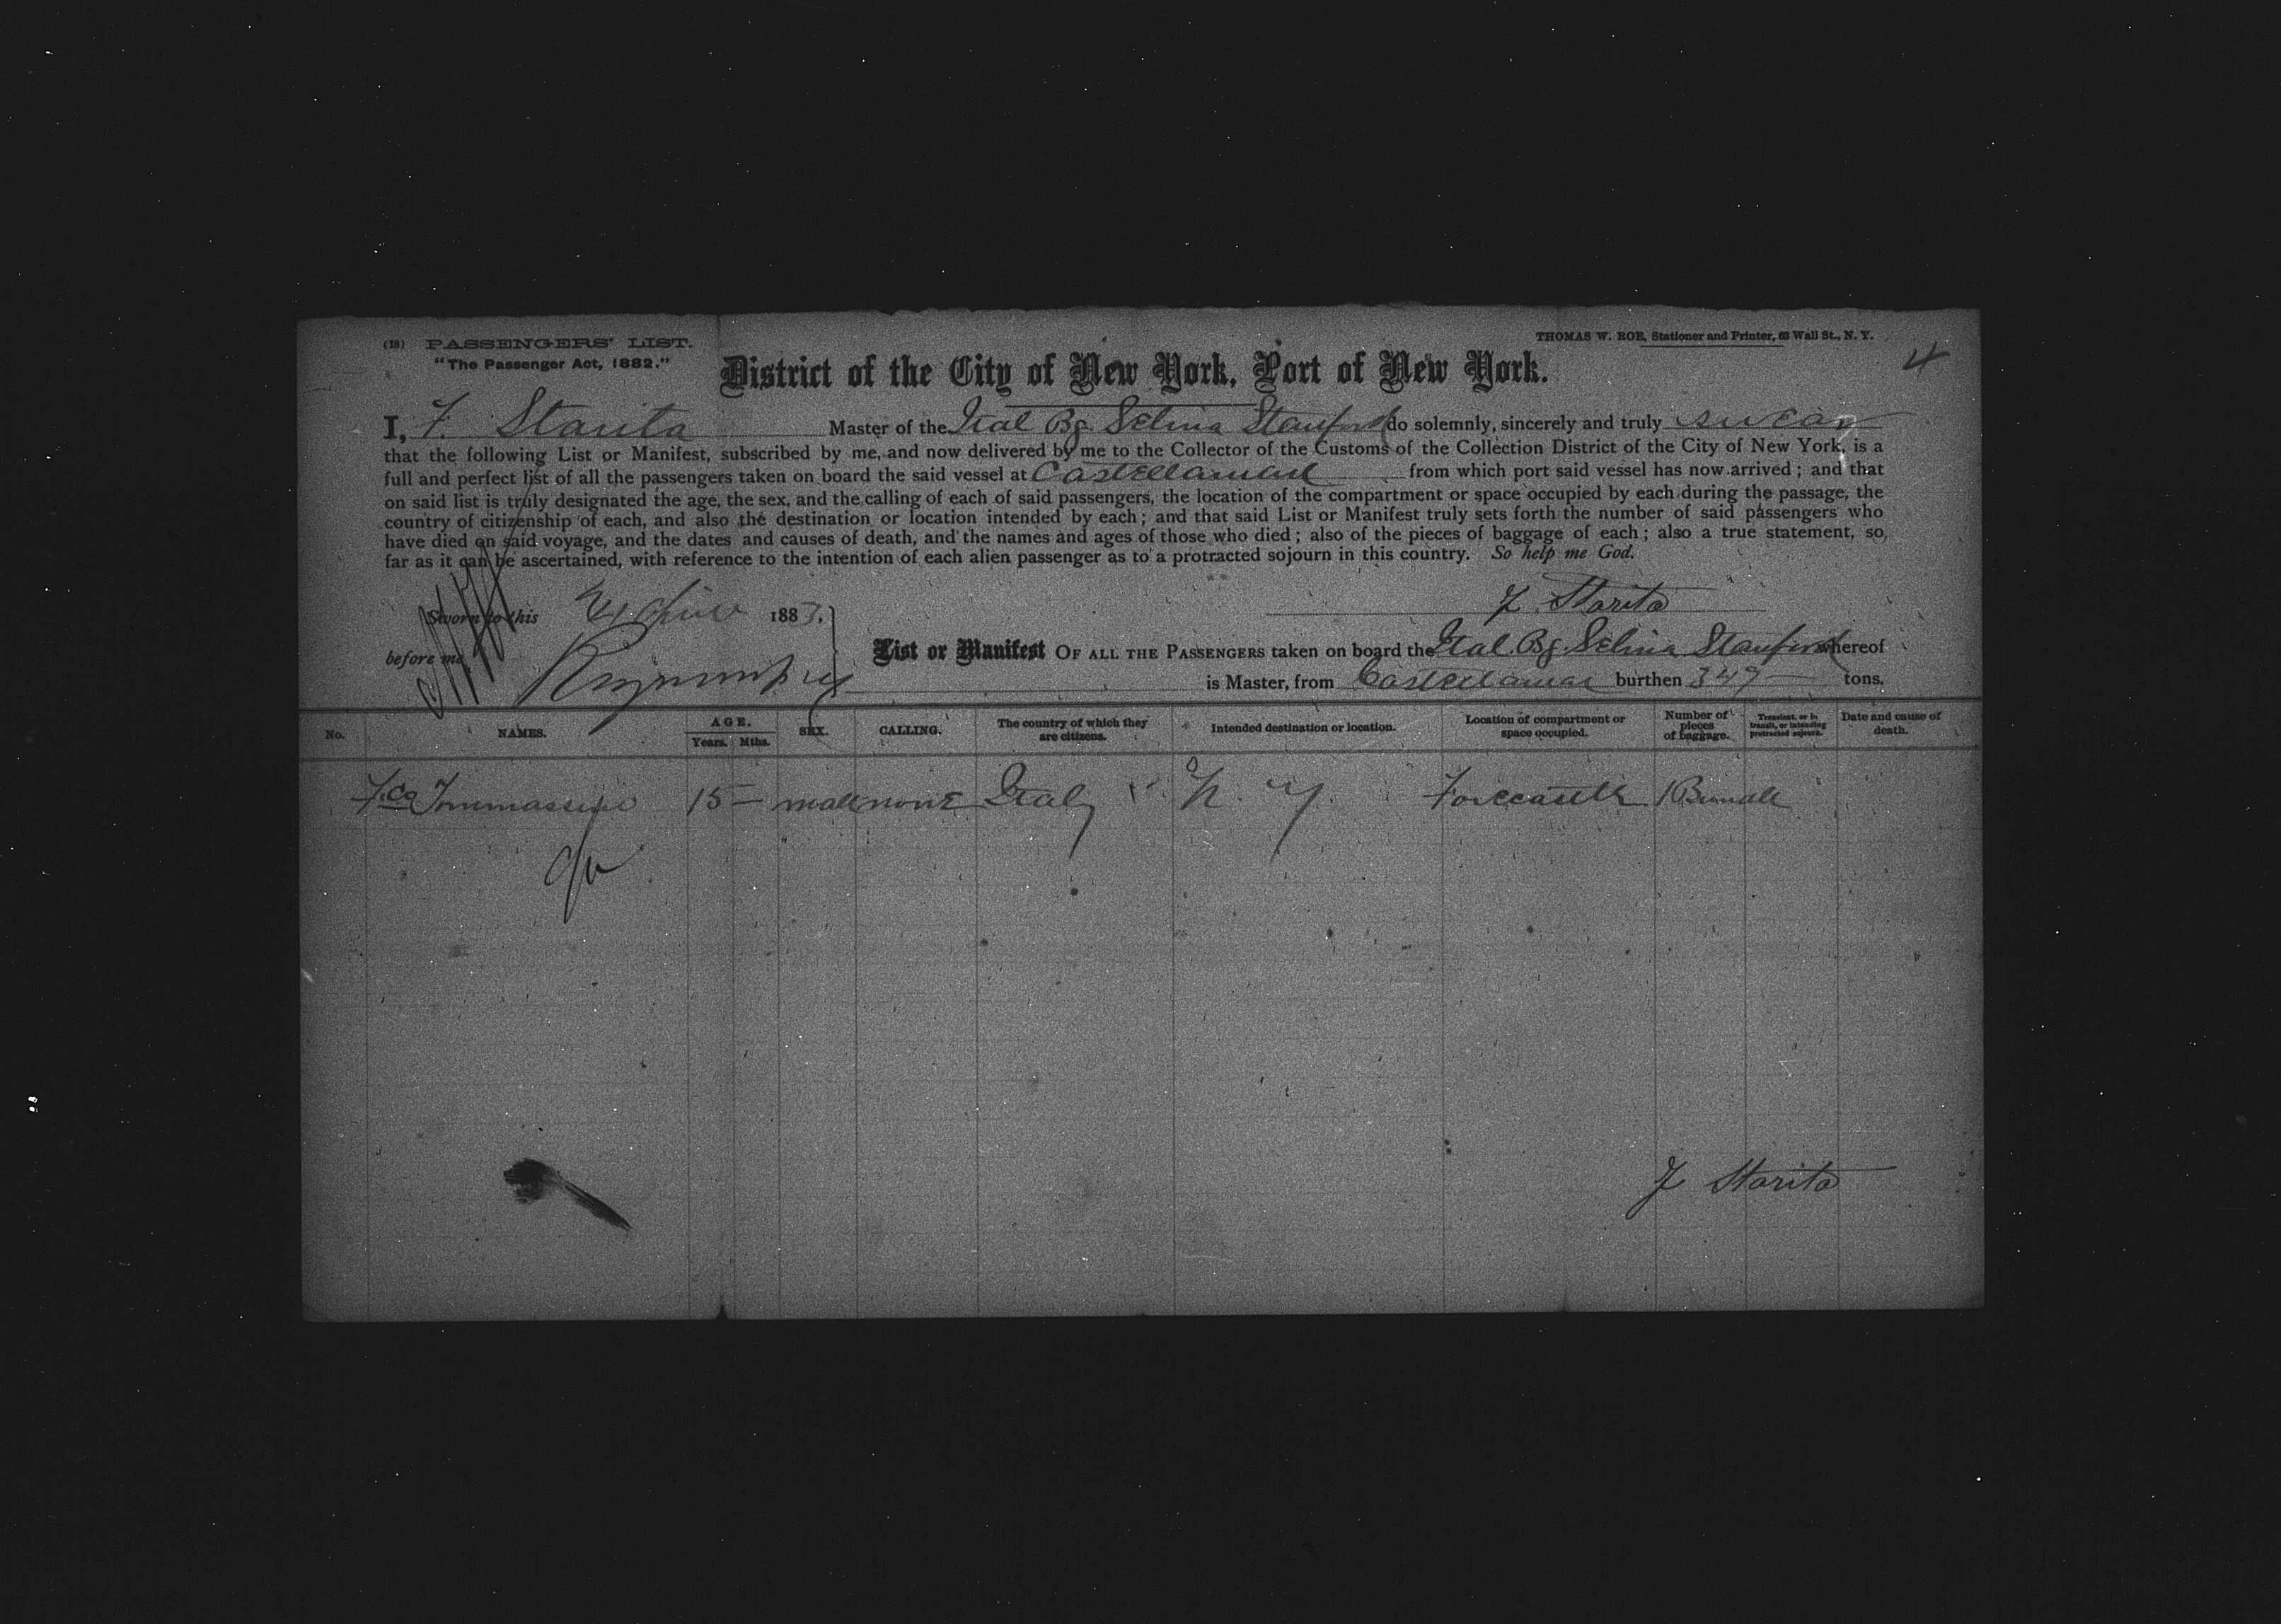 (18) PASSENGERS' LIST.
THOMAS W. ROE, Stationer and Printer, 63 Wall St., N. Y.
4
"The Passenger Act, 1882."
District of the City of New York, Port of New York.
I, F. Starita Master of the Ital Bg. Selina Stanford do solemnly, sincerely and truly swear
that the following List or Manifest, subscribed by me, and now delivered by me to the Collector of the Customs of the Collection District of the City of New York, is a
full and perfect list of all the passengers taken on board the said vessel at Castellamare from which port said vessel has now arrived; and that
on said list is truly designated the age, the sex, and the calling of each of said passengers, the location of the compartment or space occupied by each during the passage, the
country of citizenship of each, and also the destination or location intended by each; and that said List or Manifest truly sets forth the number of said passengers who
have died on said voyage, and the dates and causes of death, and the names and ages of those who died; also of the pieces of baggage of each; also a true statement, so,
far as it can be ascertained, with reference to the intention of each alien passenger as to a protracted sojourn in this country. So help me God.
Sworn to this 1883.
F. Starita
before me
List or Manifest OF ALL THE PASSENGERS taken on board the Ital. Bg. Selina Stanford whereof
is Master, from Castellamar burthen 349 tons.
No. NAMES. AGE. Years. Mths. SEX. CALLING. The country of which they are citizens. Intended destination or location. Location of compartment or space occupied. Number of pieces of baggage. Transient, or in transit, or intending protracted sojourn. Date and cause of death.
Fco 15 — male none Italy N. Y. Forecastle 1
F Starita